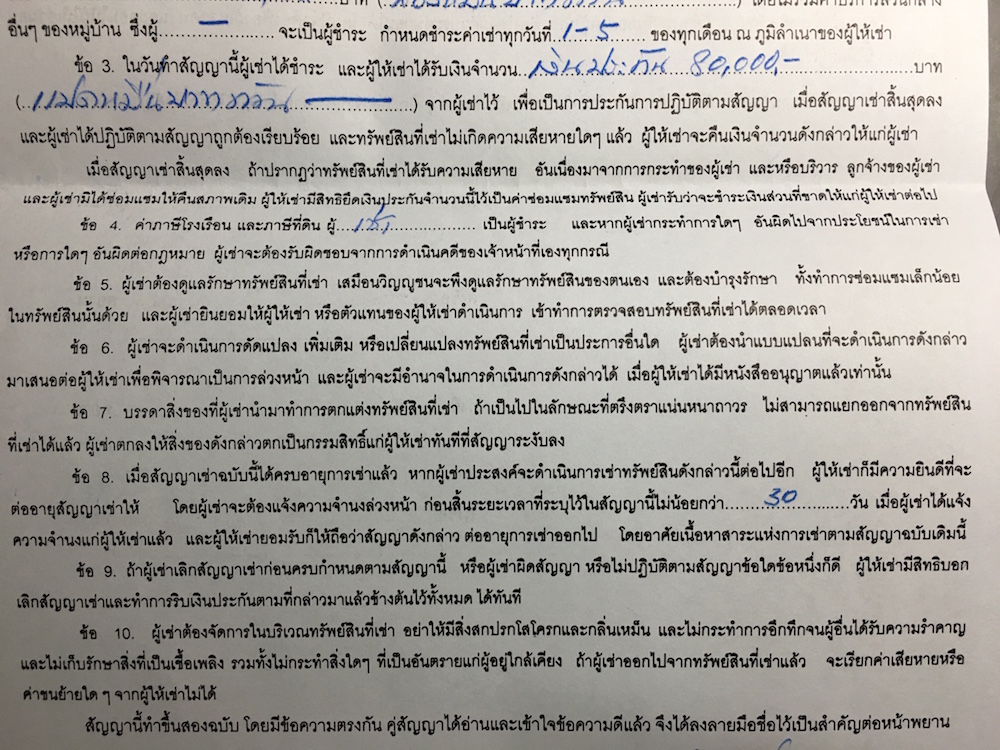 บาท (
) โดยไม่รวมค่าบริการส่วนกลาง
อื่นๆ ของหมู่บ้าน ซึ่งผู้.......—........... จะเป็นผู้ชำระ กำหนดชำระค่าเช่าทุกวันที่..1-5....... ของทุกเดือน ณ ภูมิลำเนาของผู้ให้เช่า
ข้อ 3. ในวันทำสัญญานี้ผู้เช่าได้ชำระ และผู้ให้เช่าได้รับเงินจำนวน...เงินประกัน 80,000,-..................บาท
(..แปดหมื่นบาทถ้วน ————............) จากผู้เช่าไว้ เพื่อเป็นการประกันการปฏิบัติตามสัญญา เมื่อสัญญาเช่าสิ้นสุดลง
และผู้เช่าได้ปฏิบัติตามสัญญาถูกต้องเรียบร้อย และทรัพย์สินที่เช่าไม่เกิดความเสียหายใดๆ แล้ว ผู้ให้เช่าจะคืนเงินจำนวนดังกล่าวให้แก่ผู้เช่า
เมื่อสัญญาเช่าสิ้นสุดลง ถ้าปรากฏว่าทรัพย์สินที่เช่าได้รับความเสียหาย อันเนื่องมาจากการกระทำของผู้เช่า และหรือบริวาร ลูกจ้างของผู้เช่า
และผู้เช่ามิได้ซ่อมแซมให้คืนสภาพเดิม ผู้ให้เช่ามีสิทธิยึดเงินประกันจำนวนนี้ไว้เป็นค่าซ่อมแซมทรัพย์สิน ผู้เช่ารับว่าจะชำระเงินส่วนที่ขาดให้แก่ผู้ให้เช่าต่อไป
ข้อ 4. ค่าภาษีโรงเรือน และภาษีที่ดิน ผู้....เช่า................ เป็นผู้ชำระ และหากผู้เช่ากระทำการใดๆ อันผิดไปจากประโยชน์ในการเช่า
หรือการใดๆ อันผิดต่อกฎหมาย ผู้เช่าจะต้องรับผิดชอบจากการดำเนินคดีของเจ้าหน้าที่เองทุกกรณี
ข้อ 5. ผู้เช่าต้องดูแลรักษาทรัพย์สินที่เช่า เสมือนวิญญูชนจะพึงดูแลรักษาทรัพย์สินของตนเอง และต้องบำรุงรักษา ทั้งทำการซ่อมแซมเล็กน้อย
ในทรัพย์สินนั้นด้วย และผู้เช่ายินยอมให้ผู้ให้เช่า หรือตัวแทนของผู้ให้เช่าดำเนินการ เข้าทำการตรวจสอบทรัพย์สินที่เช่าได้ตลอดเวลา
ข้อ 6. ผู้เช่าจะดำเนินการดัดแปลง เพิ่มเติม หรือเปลี่ยนแปลงทรัพย์สินที่เช่าเป็นประการอื่นใด ผู้เช่าต้องนำแบบแปลนที่จะดำเนินการดังกล่าว
มาเสนอต่อผู้ให้เช่าเพื่อพิจารณาเป็นการล่วงหน้า และผู้เช่าจะมีอำนาจในการดำเนินการดังกล่าวได้ เมื่อผู้ให้เช่าได้มีหนังสืออนุญาตแล้วเท่านั้น
ข้อ 7. บรรดาสิ่งของที่ผู้เช่านำมาทำการตกแต่งทรัพย์สินที่เช่า ถ้าเป็นไปในลักษณะที่ตรึงตราแน่นหนาถาวร ไม่สามารถแยกออกจากทรัพย์สิน
ที่เช่าได้แล้ว ผู้เช่าตกลงให้สิ่งของดังกล่าวตกเป็นกรรมสิทธิ์แก่ผู้ให้เช่าทันทีที่สัญญาระงับลง
ข้อ 8. เมื่อสัญญาเช่าฉบับนี้ได้ครบอายุการเช่าแล้ว หากผู้เช่าประสงค์จะดำเนินการเช่าทรัพย์สินดังกล่าวนี้ต่อไปอีก ผู้ให้เช่าก็มีความยินดีที่จะ
ต่ออายุสัญญาเช่าให้ โดยผู้เช่าจะต้องแจ้งความจำนงล่วงหน้า ก่อนสิ้นระยะเวลาที่ระบุไว้ในสัญญานี้ไม่น้อยกว่า......30.........วัน เมื่อผู้เช่าได้แจ้ง
ความจำนงแก่ผู้ให้เช่าแล้ว และผู้ให้เช่ายอมรับก็ให้ถือว่าสัญญาดังกล่าว ต่ออายุการเช่าออกไป โดยอาศัยเนื้อหาสาระแห่งการเช่าตามสัญญาฉบับเดิมนี้
ข้อ 9. ถ้าผู้เช่าเลิกสัญญาเช่าก่อนครบกำหนดตามสัญญานี้ หรือผู้เช่าผิดสัญญา หรือไม่ปฏิบัติตามสัญญาข้อใดข้อหนึ่งก็ดี ผู้ให้เช่ามีสิทธิบอก
เลิกสัญญาเช่าและทำการริบเงินประกันตามที่กล่าวมาแล้วข้างต้นไว้ทั้งหมด ได้ทันที
ข้อ 10. ผู้เช่าต้องจัดการในบริเวณทรัพย์สินที่เช่า อย่าให้มีสิ่งสกปรกโสโครกและกลิ่นเหม็น และไม่กระทำการอึกทึกจนผู้อื่นได้รับความรำคาญ
และไม่เก็บรักษาสิ่งที่เป็นเชื้อเพลิง รวมทั้งไม่กระทำสิ่งใดๆ ที่เป็นอันตรายแก่ผู้อยู่ใกล้เคียง ถ้าผู้เช่าออกไปจากทรัพย์สินที่เช่าแล้ว จะเรียกค่าเสียหายหรือ
ค่าขนย้ายใด ๆ จากผู้ให้เช่าไม่ได้
สัญญานี้ทำขึ้นสองฉบับ โดยมีข้อความตรงกัน คู่สัญญาได้อ่านและเข้าใจข้อความดีแล้ว จึงได้ลงลายมือชื่อไว้เป็นสำคัญต่อหน้าพยาน